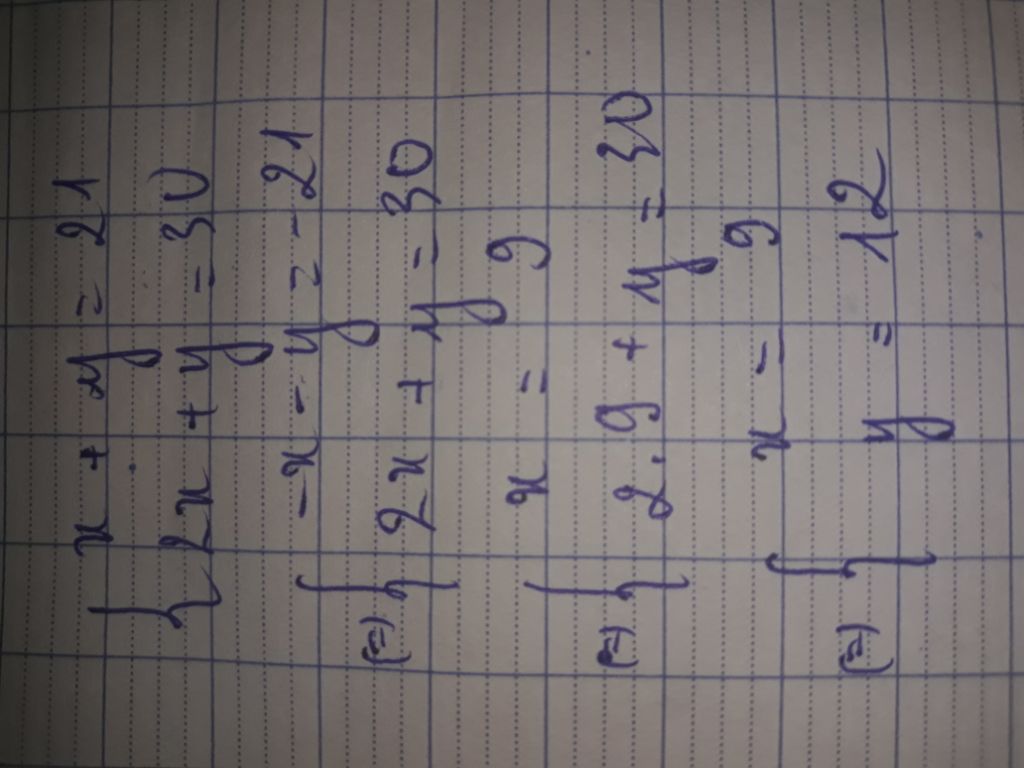 { x + y = 21
2x + y = 30
(=) { -x - y = -21
2x + y = 30
(=) { x = 9
2.9 + y = 30
(=) { x = 9
y = 12